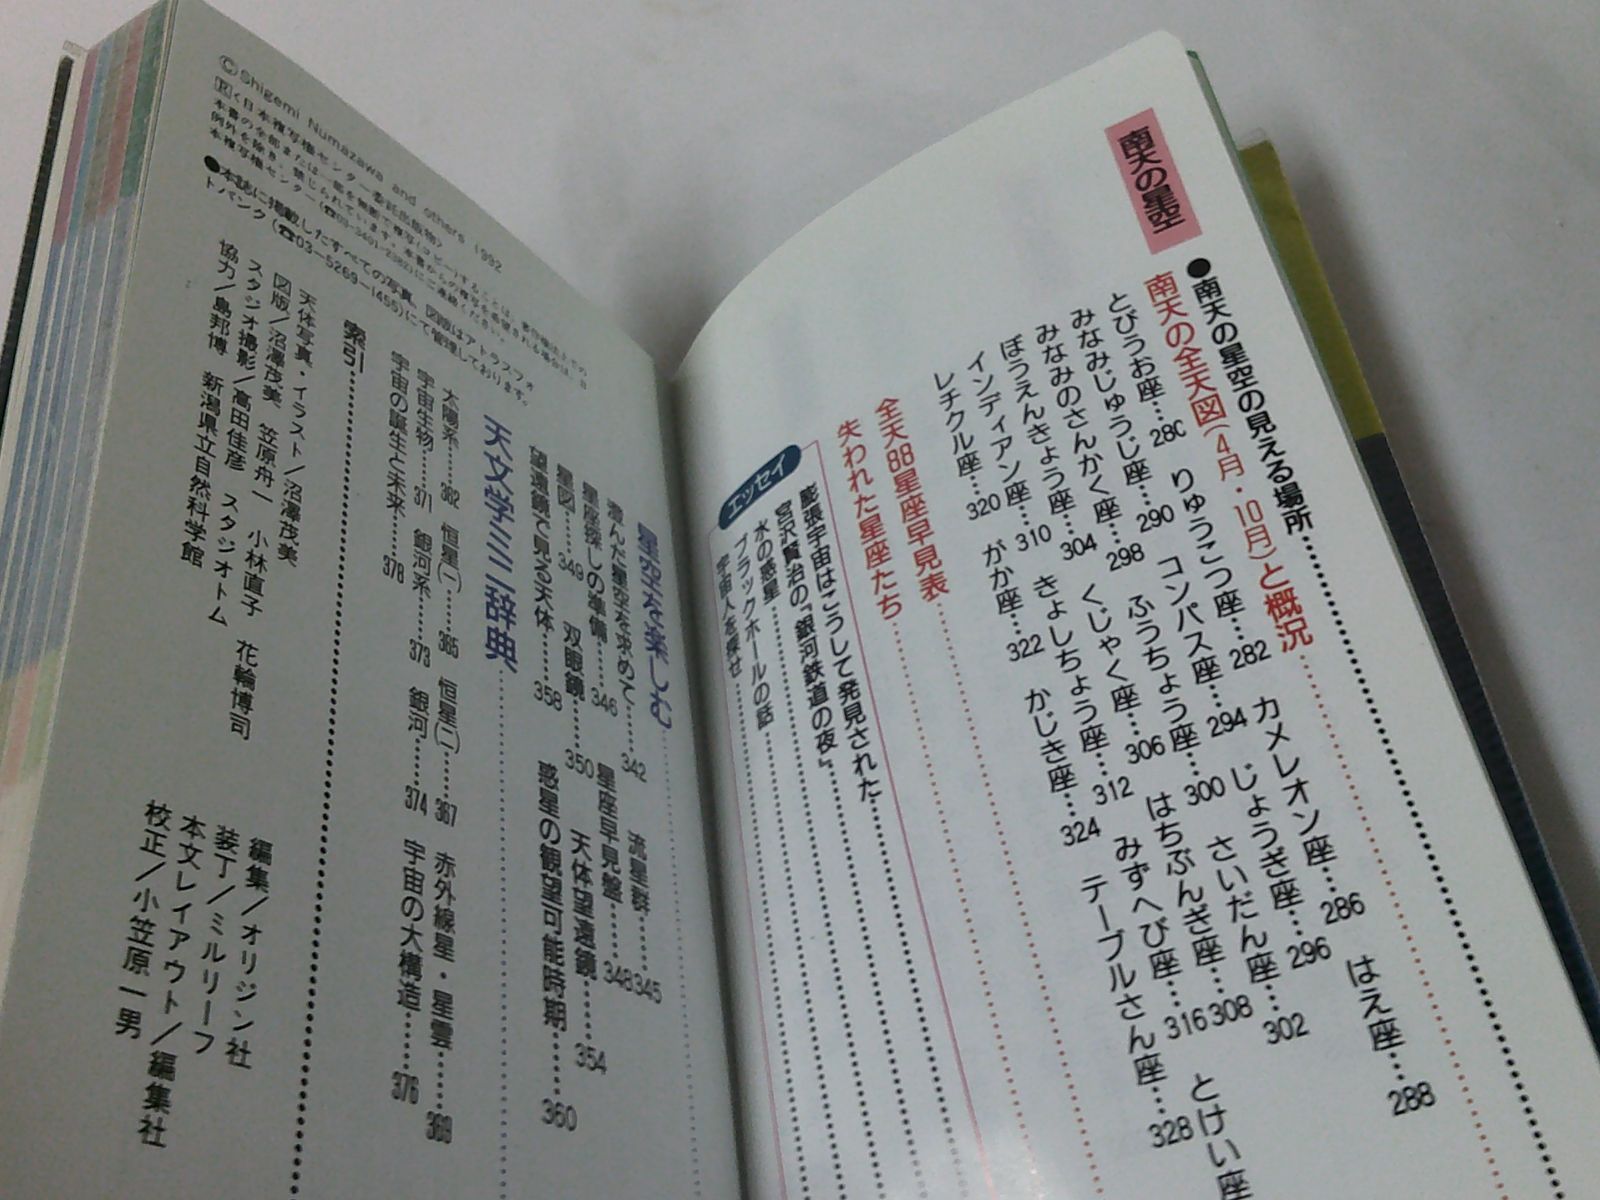 南天の星空
●南天の星空の見える場所
南天の全天図(4月・10月)と概況
とびうお座…280 りゅうこつ座…282 カメレオン座…286 はえ座…288
みなみじゅうじ座…290 コンパス座…294 じょうぎ座…296
みなみのさんかく座…298 ふうちょう座…300 さいだん座…302 とけい座
ぼうえんきょう座…304 くじゃく座…306 はちぶんぎ座…308
インディアン座…310 きょしちょう座…312 みずへび座…316
レチクル座…320 がか座…322 かじき座…324 テーブルさん座…328
全天88星座早見表
失われた星座たち
エッセイ
膨張宇宙はこうして発見された
宮沢賢治の『銀河鉄道の夜』
水の惑星
ブラックホールの話
宇宙人を探せ
星空を楽しむ
澄んだ星空を求めて…342 流星群…345
星座探しの準備…346 星座早見盤…348
星図…349 双眼鏡…350 天体望遠鏡…354
望遠鏡で見る天体…358 惑星の観望可能時期…360
天文学ミニ辞典
太陽系…362 恒星(一)…365 恒星(二)…367 赤外線星・星雲…369
宇宙生物…371 銀河系…373 銀河…374 宇宙の大構造…376
宇宙の誕生と未来…378
索引
天体写真・イラスト/沼澤茂美
図版/沼澤茂美 笠原舟一 小林直子 花輪博司
スタジオ撮影/高田佳彦 スタジオトム
協力/島邦博 新潟県立自然科学館
編集/オリジン社
装丁/ミルリーフ
本文レイアウト/編集社
校正/小笠原一男
©Shigemi Numazawa and others 1992
R<日本複写権センター委託出版物>
本書の全部または一部を無断で複写(コピー)することは、著作権法上での
例外を除き、禁じられています。本書からの複写を希望される場合は、日
本複写権センター(☎03-3401-2382)にご連絡ください。
●本誌に掲載したすべての写真、図版はアトラスフォ
トバンク(☎03-5269-1455)にて管理しております。